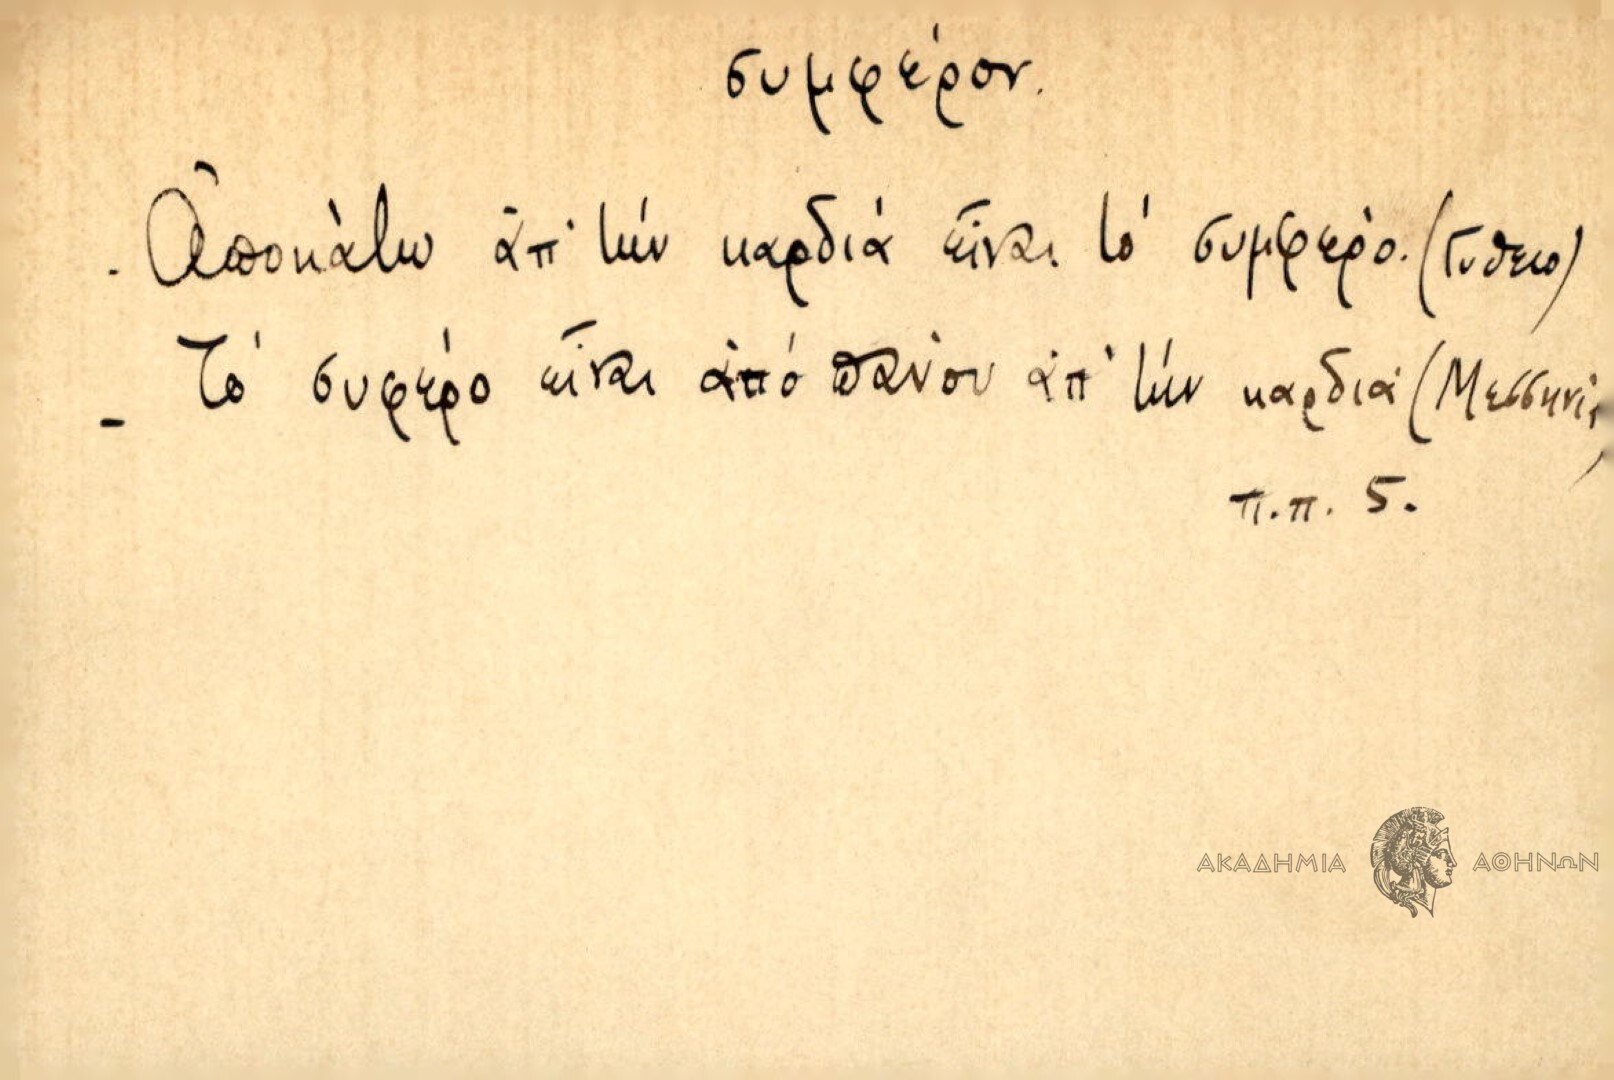 συμφέρον.
- Ἀποκάτω ἀπ' τήν καρδιά εἶναι τό συμφέρο. (Γύθειο)
- Τό συφέρο εἶναι ἀπό πάνου ἀπ' τήν καρδιά (Μεσσηνία)
π.π. 5.
ΑΚΑΔΗΜΙΑ ΑΘΗΝΩΝ